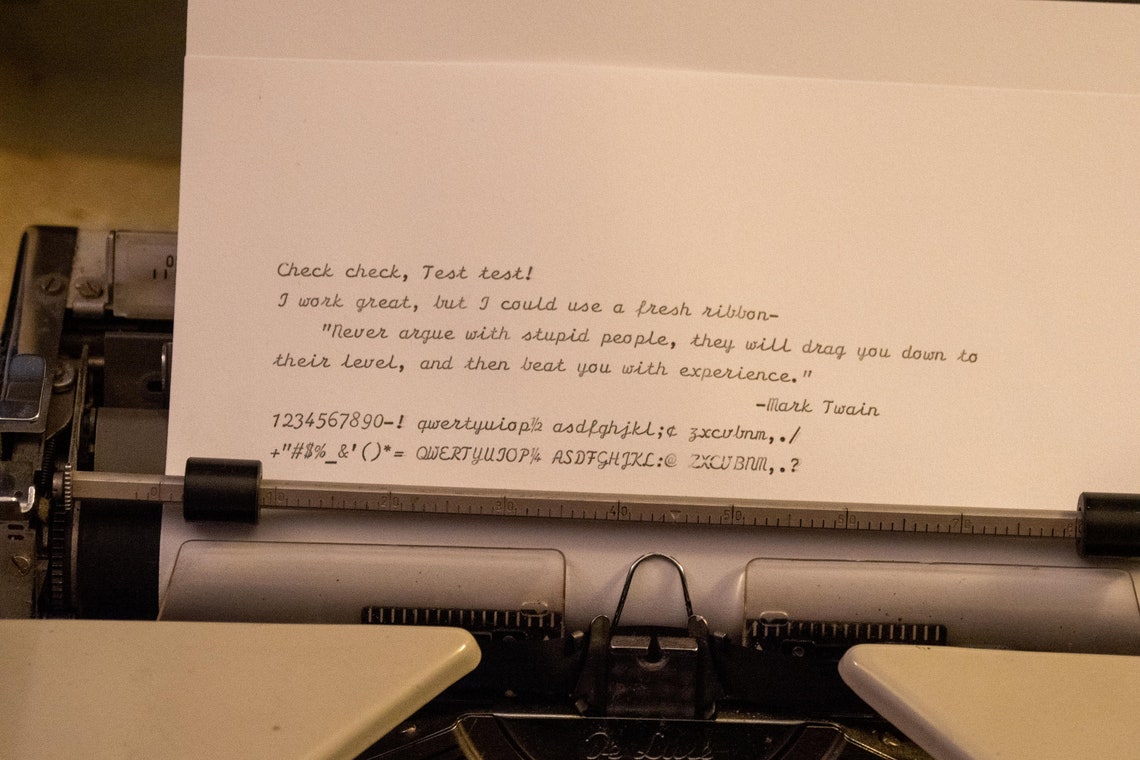 Check check, Test test!
I work great, but I could use a fresh ribbon-
"Never argue with stupid people, they will drag you down to
their level, and then beat you with experience."
-Mark Twain
1234567890-! qwertyuiop½ asdfghjkl;¢ zxcvbnm,./
+"#$%_&'()*= QWERTYUIOP¼ ASDFGHJKL:@ ZXCVBNM,.?
0 10 20 30 40 50 60 70
De Luxe